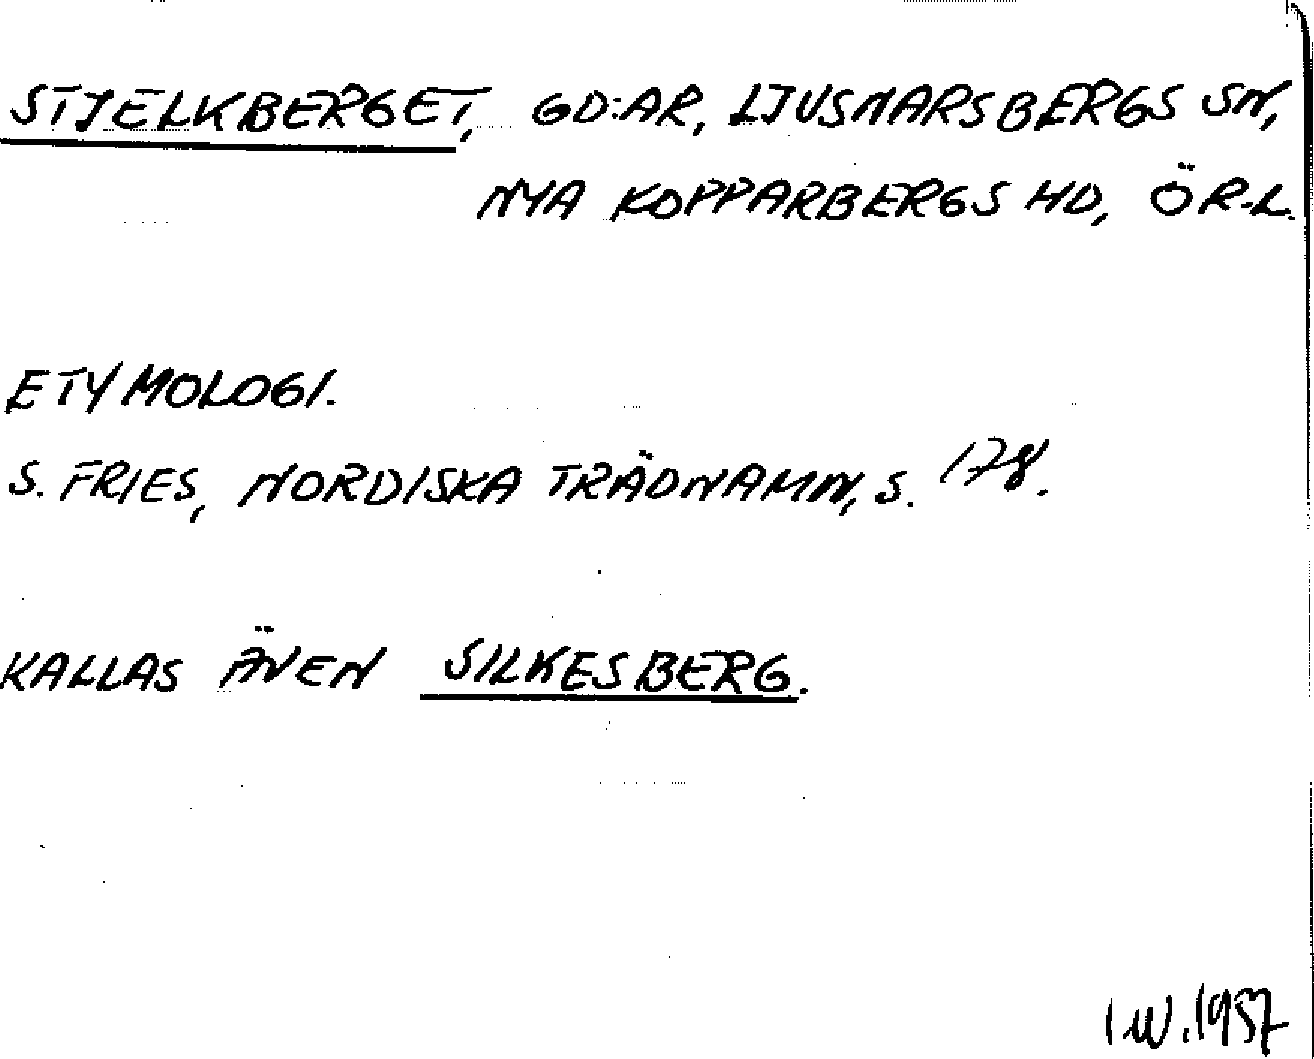 STJELKBERGET, GD:AR, LJUSNARSBERGS SN,
NYA KOPPARBERGS HD, ÖR-L.
ETYMOLOGI.
S. FRIES, NORDISKA TRÄDNAMN, S. 178.
KALLAS ÄVEN SILKESBERG.
I W. 1957